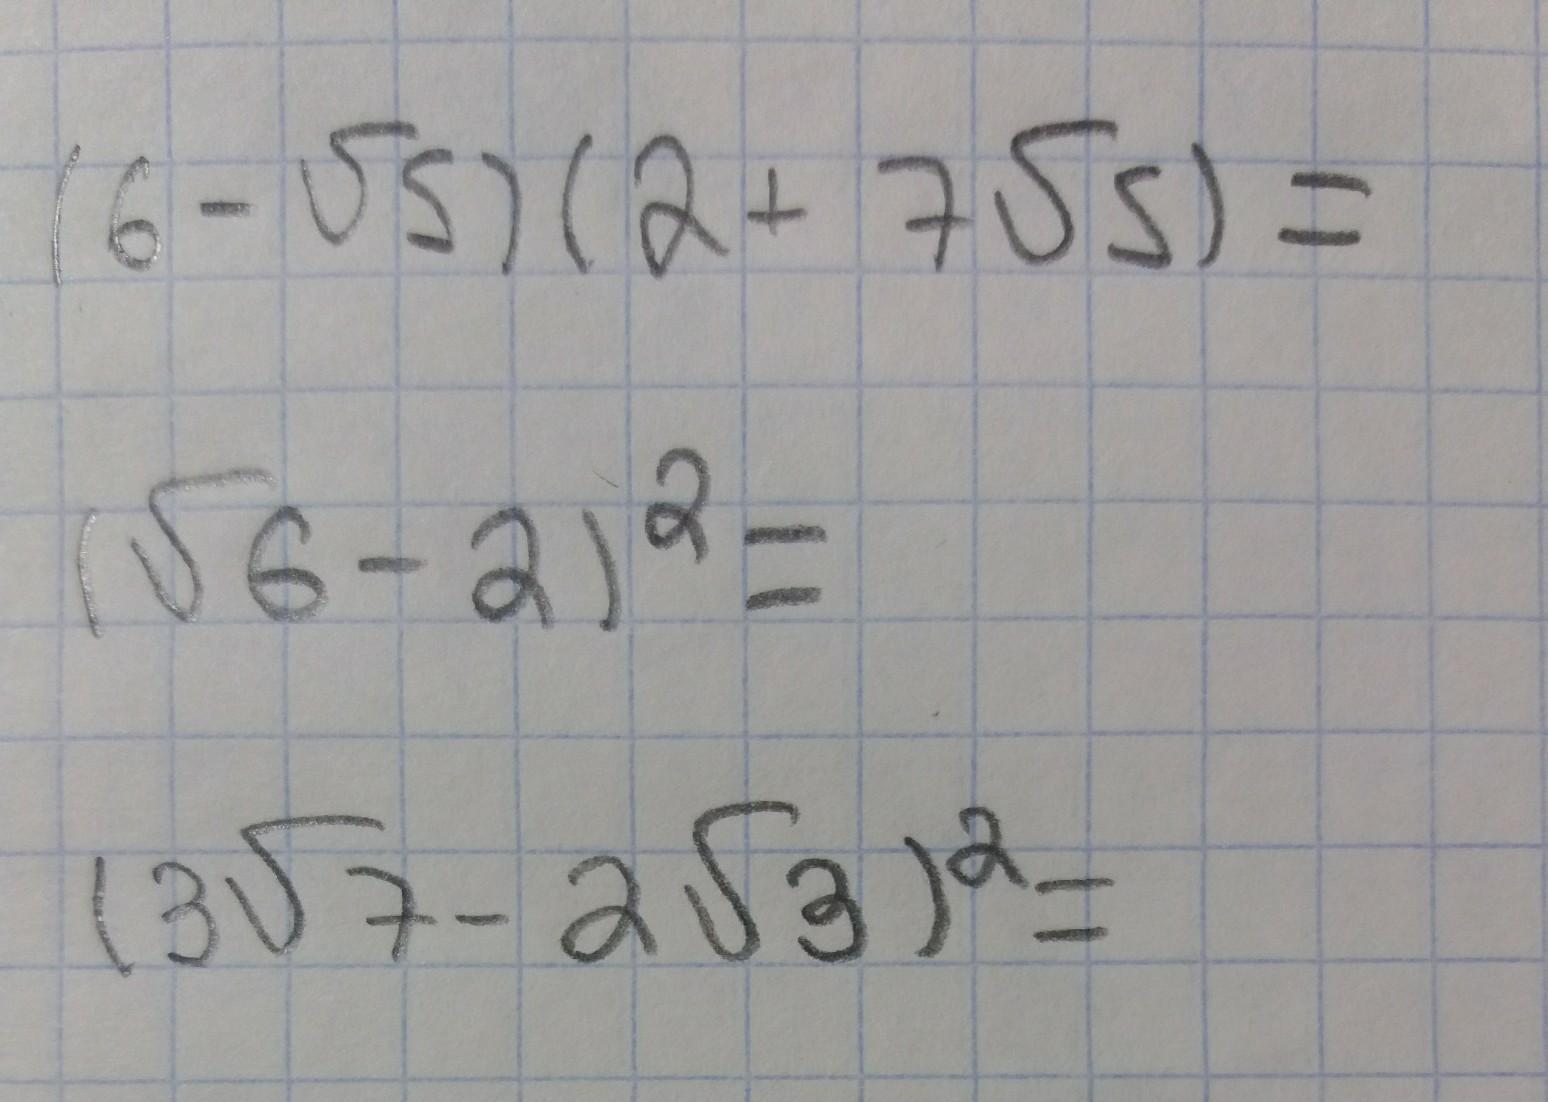 (6-√5)(2+7√5)=
(√6-2)²=
(3√7-2√3)²=